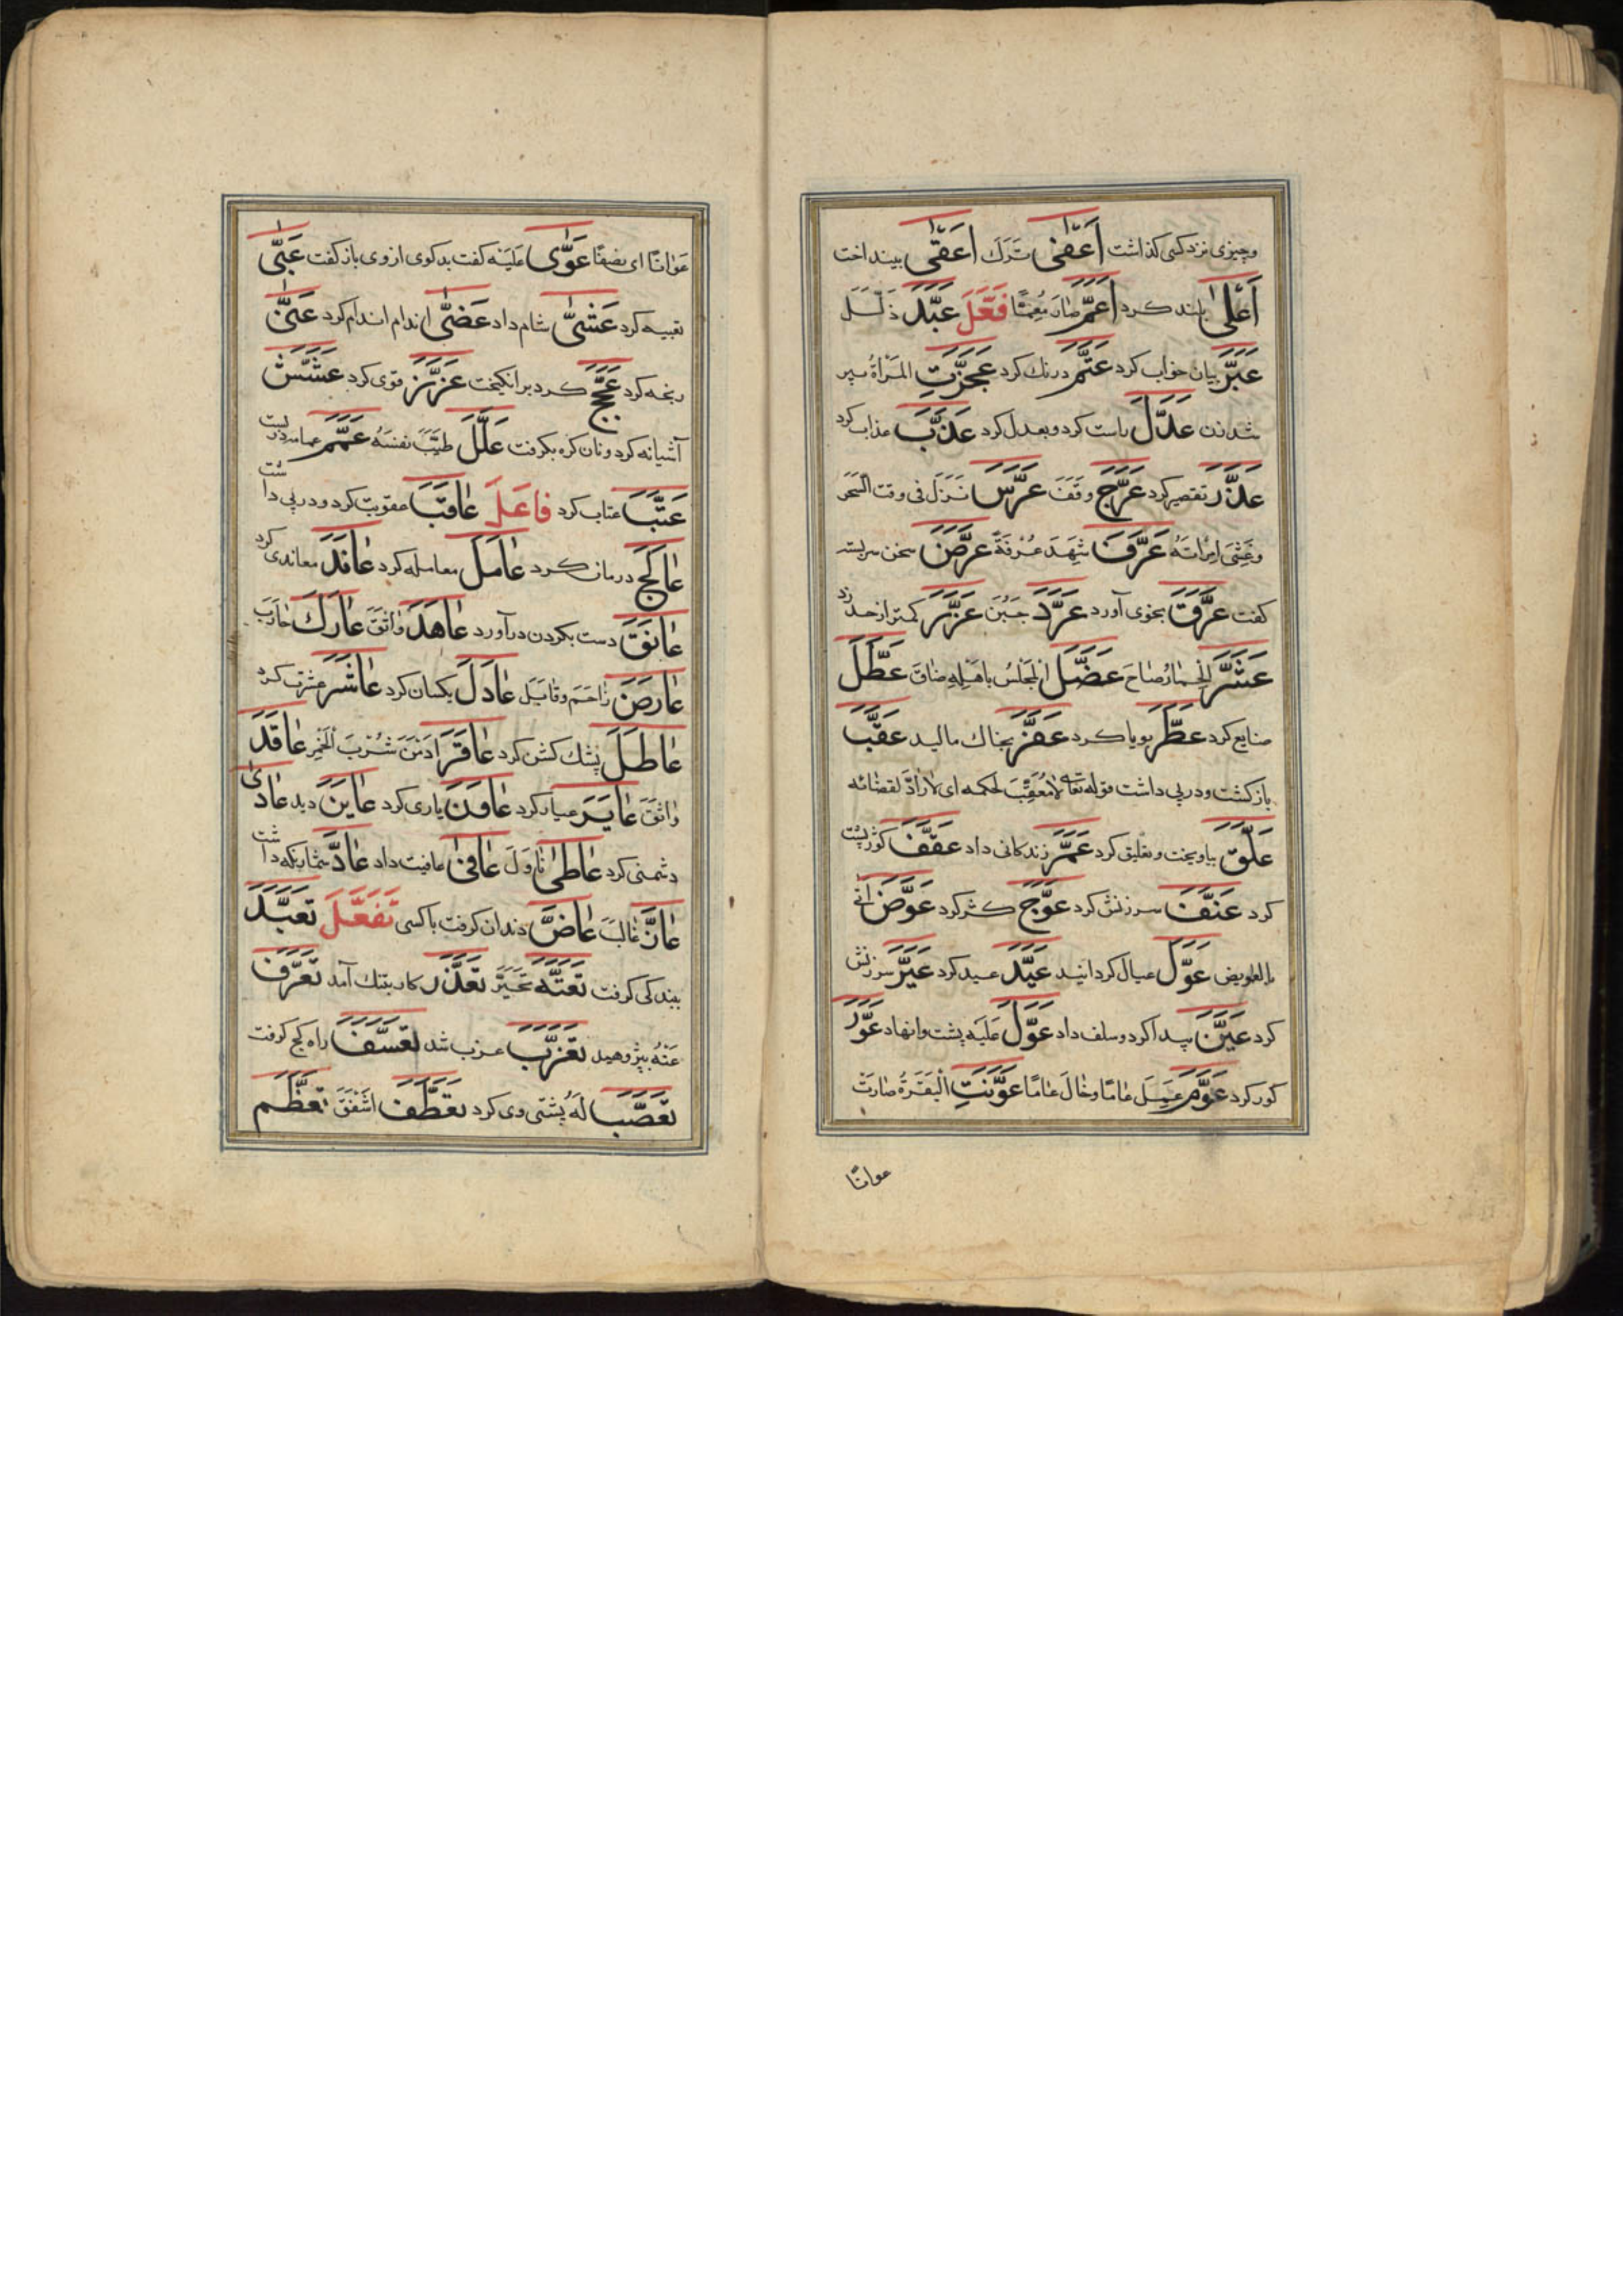 وچیزی نزد کسی کذاشت أَعْفٰی تَرَكَ أَعَقّٰی بینداخت
أَعْلٰی بلند کرد أَعَمَّ صَارَ مُعِمًّا فَعَّلَ عَبَّدَ ذَلَّلَ
عَبَّرَ بیان خواب کرد عَتَّمَ درنك کرد عَجَّزَتِ المَرْأَةُ پیر
شد زن عَدَّلَ راست کرد و بعدل کرد عَذَّبَ عذاب کرد
عَذَّرَ تقصیر کرد عَرَّجَ وقَفَ عَرَّسَ نَزَلَ فی وقت السَّحَر
وغَشِیَ امْرَاتَهُ عَرَّفَ شَهِدَ عَرَفَةَ عَرَّضَ سخن سربسته
کفت عَرَّقَ بخوی آورد عَرَّدَ جَبُنَ عَزَّرَ کمتر از حد زد
عَشَّرَ الْحِمَارُ صَاحَ عَضَّلَ الْمَجْلِسُ بِاَهْلِهِ ضاق عَطَّلَ
ضایع کرد عَطَّرَ بویا کرد عَفَّرَ بخاك مالید عَقَّبَ
بازکشت ودرپی داشت قوله تعالی لَا مُعَقِّبَ لحکمه ای لَا رَادَّ لقضائه
عَلَّقَ بیاویخت و تعلیق کرد عَمَّرَ زندکانی داد عَقَّفَ کوژپشت
کرد عَنَّفَ سرزنش کرد عَوَّجَ کژ کرد عَوَّضَ اَتٰی
بالعویض عَوَّلَ عیال کردانید عَیَّدَ عید کرد عَیَّرَ سرزنش
کرد عَیَّنَ پیدا کرد و سلف داد عَوَّلَ عَلَیْهِ پشت وانهاد عَوَّرَ
کور کرد عَوَّمَ عَمِلَ عَامًا وخَالَ عَامًا عَوَّنَتِ الْبَقَرَةُ صَارَتْ
عوانًا
عَوَانًا ای نصفًا عَوّٰی عَلَیْهِ کفت بدکوی از وی باز کفت عَبّٰی
تعبیه کرد عَشّٰی شام داد عَضّٰی اندام اندام کرد عَنّٰی
رنجه کرد عَجَّجَ کرد برانکیخت عَزَّزَ قوی کرد عَشَّشَ
آشیانه کرد و نان کره بکرفت عَلَّلَ طیَّبَ نفسَهُ عَمَّمَ عمامه دربست
عَتَّبَ عتاب کرد فَاعَلَ عَاقَبَ عقوبت کرد و درپی داشت
عَالَجَ درمان کرد عَامَلَ معامله کرد عَانَدَ معاندی کرد
عَانَقَ دست بکردن درآورد عَاهَدَ وَاثَقَ عَارَكَ حَارَبَ
عَارَضَ زَاحَمَ وقَابَلَ عَادَلَ یکسان کرد عَاشَرَ عشرت کرد
عَاظَلَ پشك کشن کرد عَاقَرَ اَدْمَنَ شُرْبَ الْخَمْرِ عَاقَدَ
وَاثَقَ عَایَرَ عیار کرد عَاوَنَ یاری کرد عَایَنَ دید عَادٰی
دشمنی کرد عَاطٰی نَاوَلَ عَافٰی عافیت داد عَادَّ شمار نکه داشت
عَازَّ غَالَبَ عَاضَّ دندان کرفت با کسی تَفَعَّلَ تَعَبَّدَ
ببندکی کرفت تَعَتَّهَ تَحَیَّرَ تَعَذَّرَ کار بتنك آمد تَعَرَّفَ
عَنْهُ بپژوهید تَعَزَّبَ عزب شد تَعَسَّفَ راه کج کرفت
تَعَصَّبَ لَهُ پشتی وی کرد تَعَطَّفَ اَشْفَقَ تَعَظَّمَ